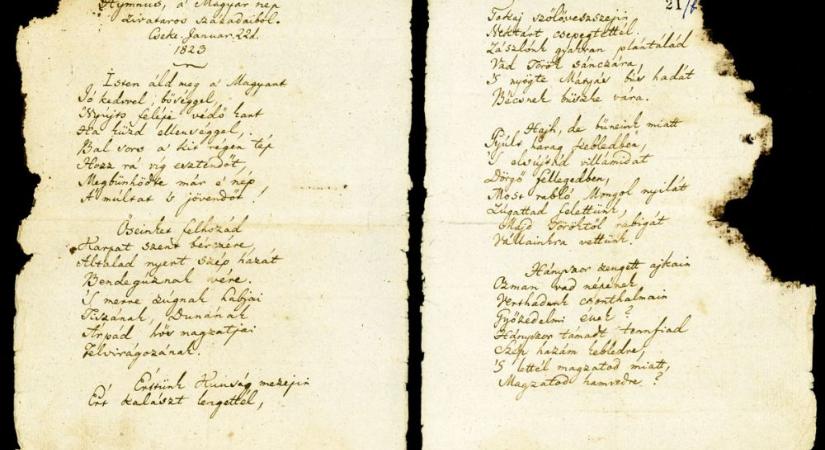 Hymnus, a' Magyar nep
Zivataros századaiból.
Cseke Januar. 22d.
1823
Isten áld meg a Magyart
Jó kedvvel, bőséggel,
Nyújts feléje védő kart
Ha küzd ellenséggel;
Bal sors a kit régen tép
Hozz rá víg esztendőt,
Megbűnhődte már e' nép
A' múltat 's jövendőt!
Őseinket felhozád
Karpat szent bérczére,
Általad nyert szép hazát
Bendeguznak vére.
'S merre zúgnak habjai
Tiszának, Dunának
Árpád hős magzatjai
Felvirágozának.
Értünk Kunság mezejin
Ért kalászt lengettél,
21/b
Tokaj szőlővesszejin
Nektárt csepegtettél.
Zászlónk gyakran plántálád
Vad Török sánczára,
'S nyögte Mátyás bús hadát
Bécsnek büszke vára.
Hajh, de bűneink miatt
Gyúlt harag kebledben,
'S elsújtád villámidat
Dörgő fellegedben,
Most rabló Mongol nyilát
Zúgattad felettünk,
Majd Töröktől rabigát
Vállainkra vettünk.
Hányszor zengett ajkain
Ozman vad népének
Verthadunk csonthalmain
Győzedelmi ének?
Hányszor támadt tennfiad
Szép hazám kebledre,
'S lettél magzatod miatt,
Magzatod hamvedre?